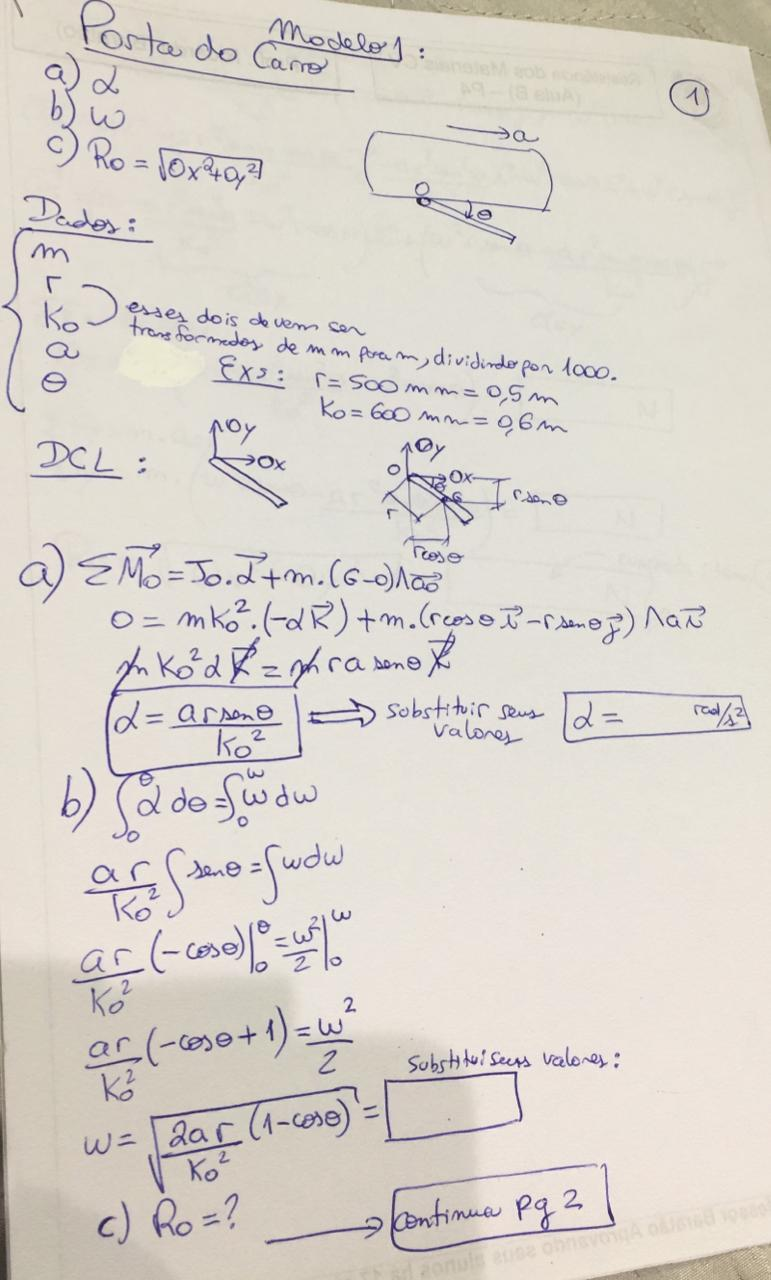 Modelo 1:
Porta do Carro
1
a) α
b) ω
c) Ro = √Ox²+Oy²
→a
O
θ
Dados:
m
r
Ko
esses dois devem ser
transformados de mm para m, dividindo por 1000.
a
θ
Exs: r = 500 mm = 0,5 m
Ko = 600 mm = 0,6 m
DCL:
Oy
Ox
Oy
O
Ox
θ
G
r
r senθ
r cosθ
a) ΣMo = Jo.α + m.(G-O)∧ao
0 = mKo².(-αK) + m.(r cosθ i - r senθ j)∧a i
m Ko² α K = m r a senθ K
α = a r senθ / Ko² ⟹ substituir seus valores α = rad/s²
b) ∫₀^θ α dθ = ∫₀^ω ω dω
ar/Ko² ∫ senθ = ∫ ω dω
ar/Ko² (-cosθ)|₀^θ = ω²/2 |₀^ω
ar/Ko² (-cosθ + 1) = ω²/2
substitui seus valores:
ω = √2ar/Ko² (1-cosθ) =
c) Ro = ? → continua pg 2